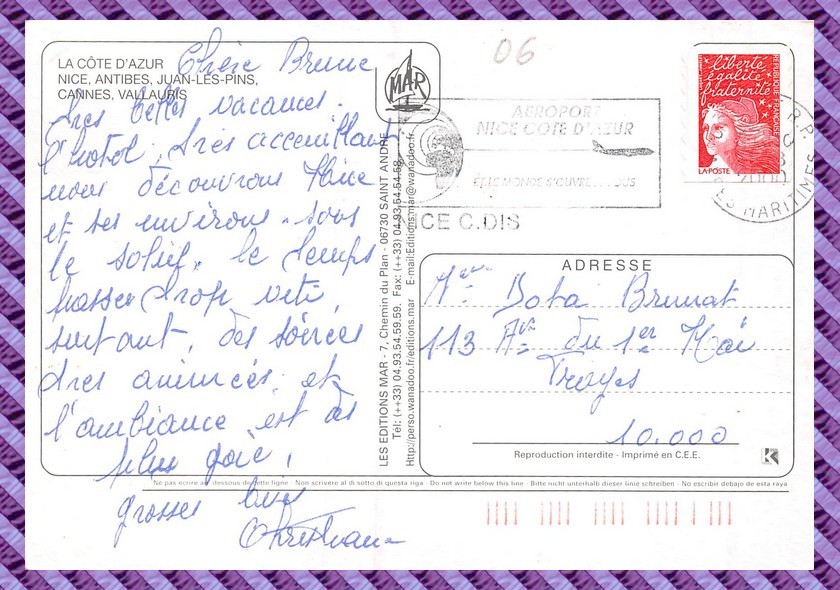 LA CÔTE D'AZUR
NICE, ANTIBES, JUAN-LES-PINS,
CANNES, VALLAURIS
Chère Brune
Très belles vacances.
l'hotel, très accceuillant
nous découvrons Nice
et ses environs. sous
le soleil. le temps
passer trop vite,
surtout, des soirées
très animées, et
l'ambiance est des
plus gaie,
grosses bises
Christiane
MAR
LES EDITIONS MAR - 7, Chemin du Plan - 06730 SAINT ANDRE
Tél: (++33) 04.93.54.59.59. Fax: (++33) 04.93.54.54.58.
Http://perso.wanadoo.fr/editions.mar E-mail:Editions.mar@wanadoo.fr
06
AEROPORT
NICE COTE D'AZUR
ET LE MONDE S'OUVRE
CE C.DIS
liberté
égalité
fraternité
RÉPUBLIQUE FRANÇAISE
LA POSTE
R.P.
2000
ES MARITIMES
ADRESSE
Dota Brunat
113 Ave du 1er Mai
Troyes
10.000
Reproduction interdite - Imprimé en C.E.E.
K
Ne pas écrire au dessous de cette ligne · Non scrivere al di sotto di questa riga · Do not write below this line · Bitte nicht unterhalb dieser linie schreiben · No escribir debajo de esta raya